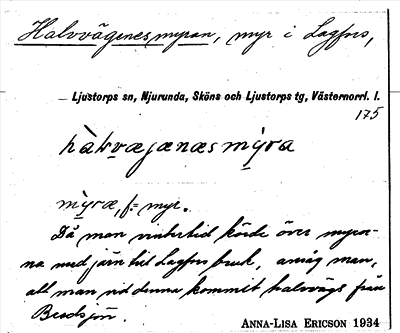 Halvvägenesmyran, myr i Lagfors,
Ljustorps sn, Njurunda, Sköns och Ljustorps tg, Västernorrl. l.
175
hàlvæjænæsmỳra
mỳræ, f. = myr.
Då man vintertid körde över myrar-
na med järn till Lagfors bruk, ansåg man,
att man vid denna kommit halvvägs från
Bredsjön.
ANNA-LISA ERICSON 1934